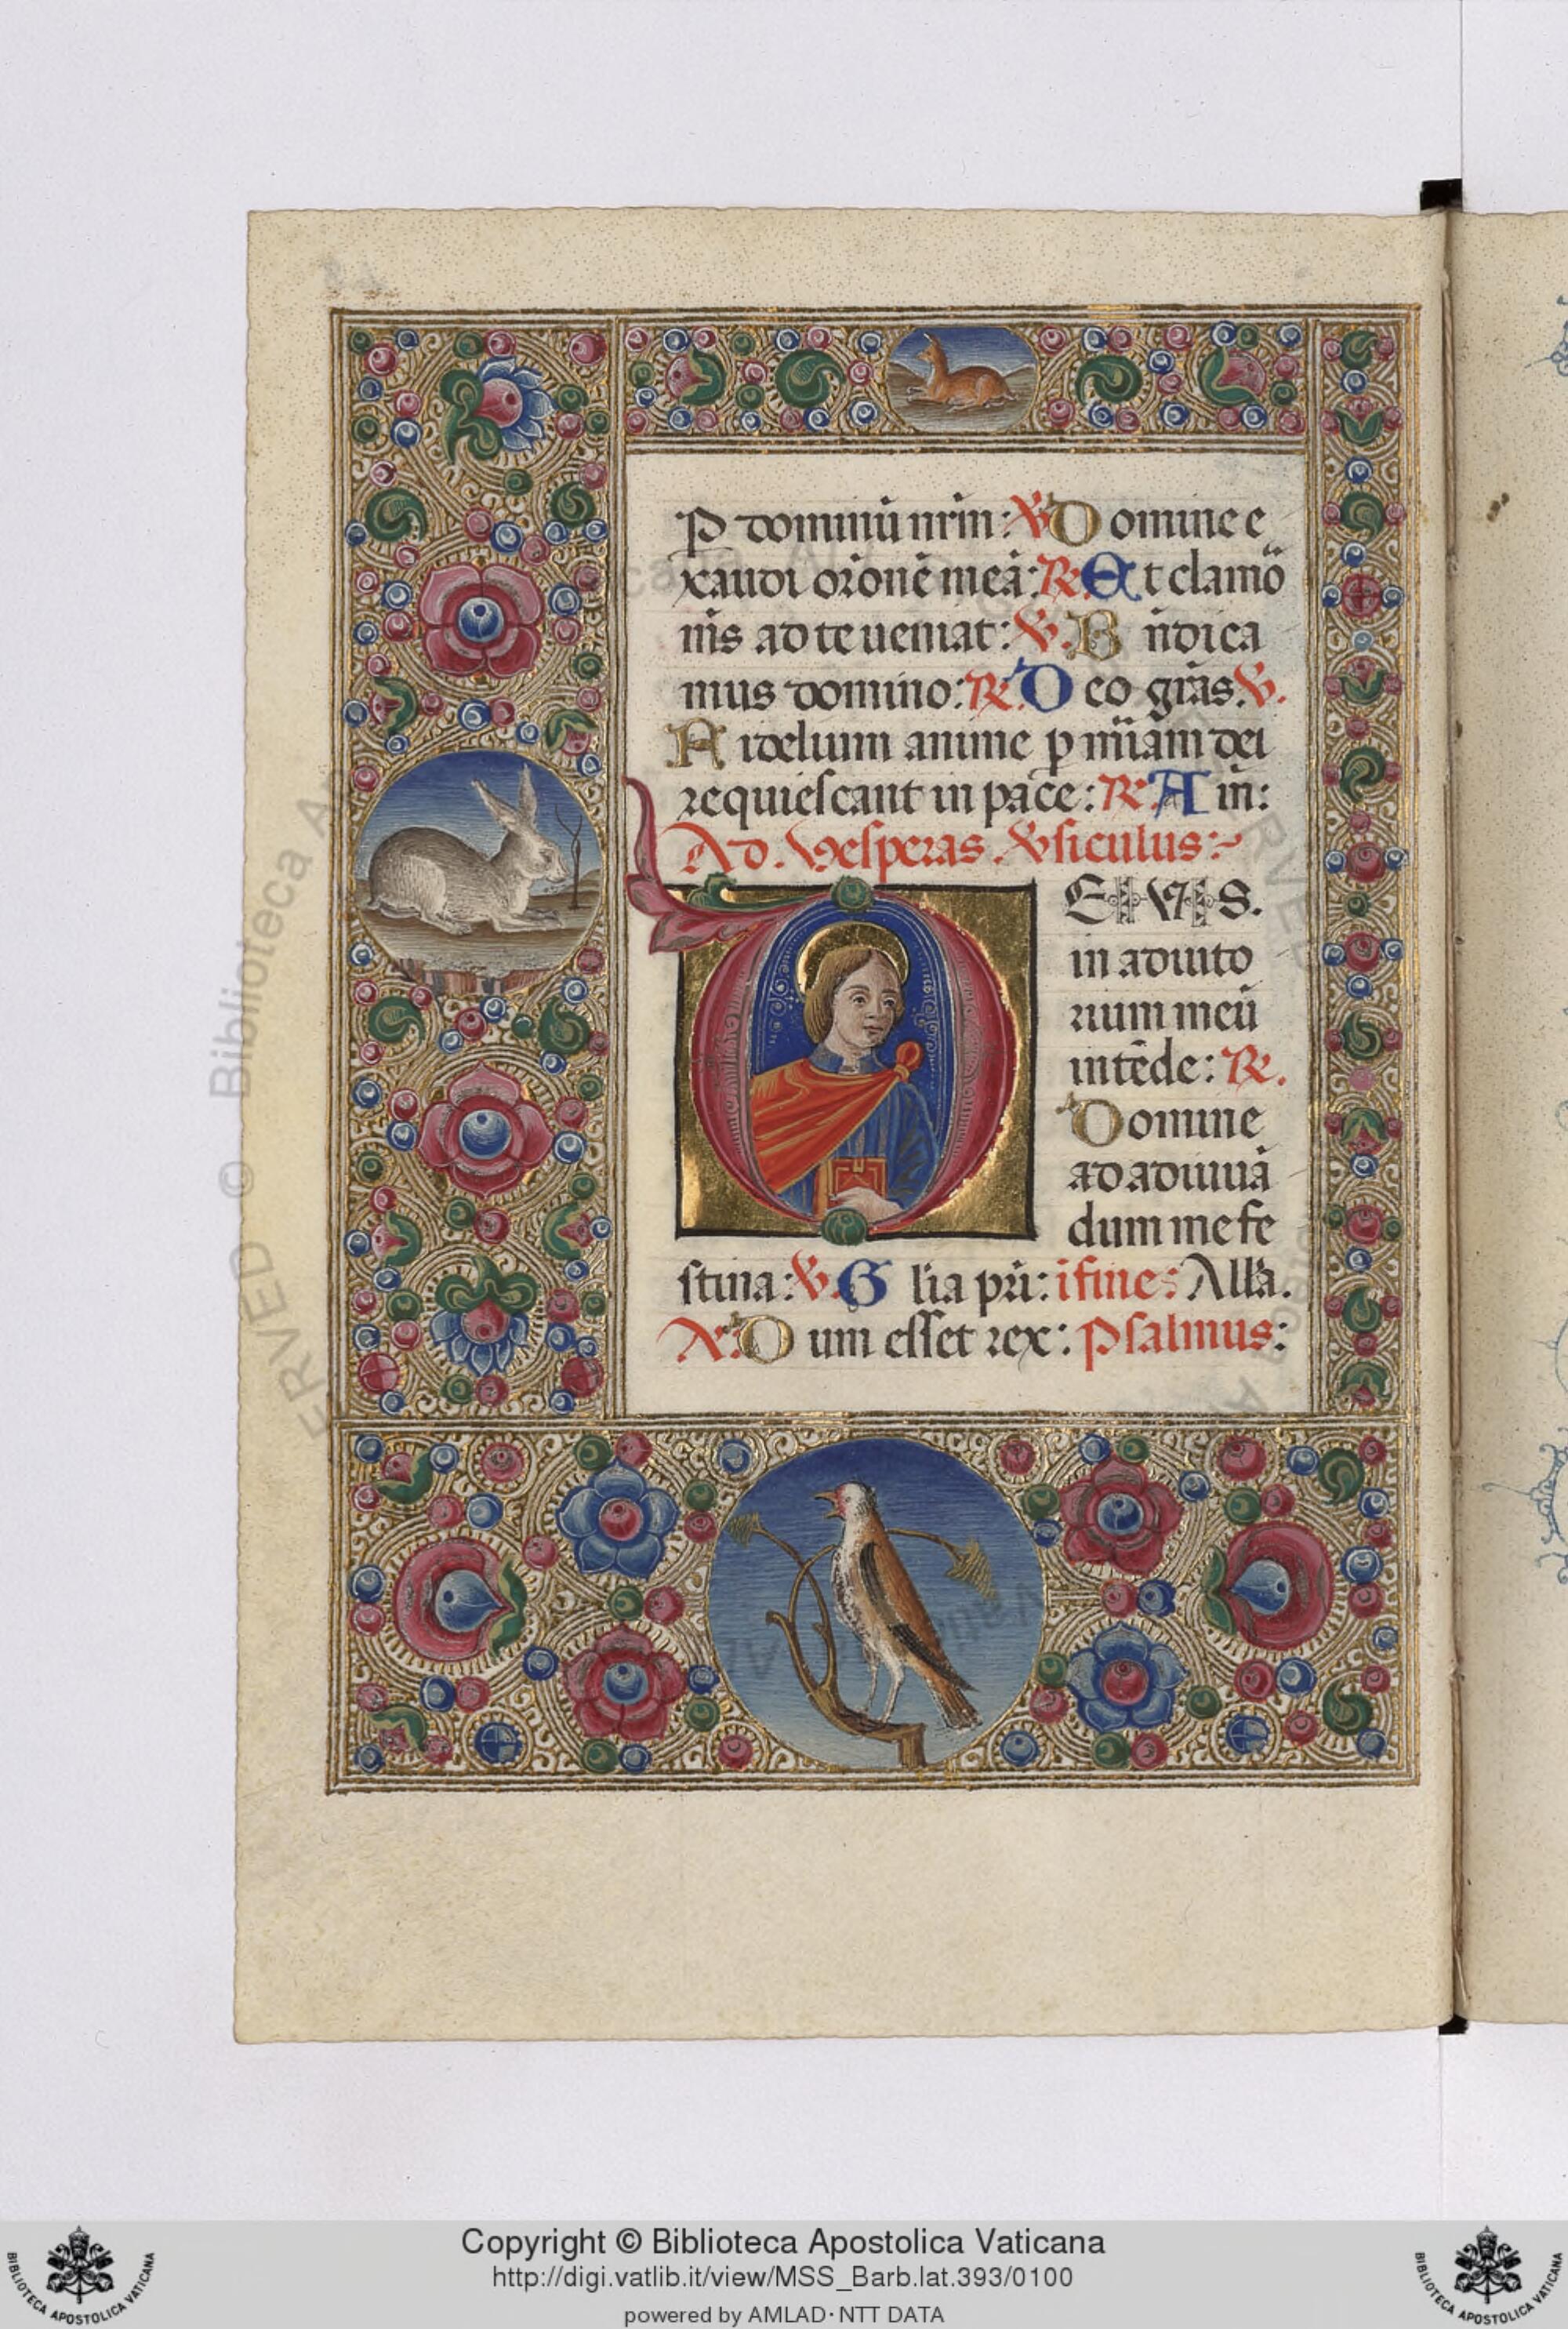 P dominū nr̄m: ℣ Domine e
xaudi or̄onē meā: ℟. Et clamō
m̄s ad te ueniat: ℣. B n̄dica
mus domino: ℟. Deo gr̄as. ℣.
Fidelium anime p mīam dei
requiescant in pace: ℟. Am̄:
Ad. Vesperas. ℣siculus:
DEVS.
in adiuto
rium meū
intēde: ℟.
Domine
ad adiuuā
dum me fe
stina: ℣. Gl̄ia pr̄i: i fine: All̄a.
A: Dum esset rex: Psalmus:
© Biblioteca Apostolica Vaticana
Copyright © Biblioteca Apostolica Vaticana
http://digi.vatlib.it/view/MSS_Barb.lat.393/0100
powered by AMLAD·NTT DATA
BIBLIOTECA APOSTOLICA VATICANA
BIBLIOTECA APOSTOLICA VATICANA